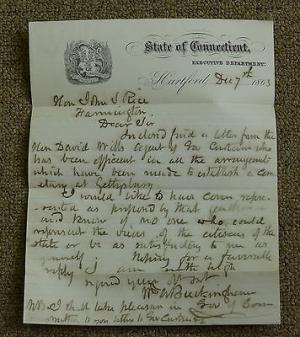 State of Connecticut,
EXECUTIVE DEPARTMENT.
Hartford, Dec 7th 1863
Hon John S Rice
Farmington
Dear Sir
Inclosed find a letter from the
Hon David Wills Agent of Gov Curtin who
has been efficient in all the arrangements
which have been made to establish a cem
etery at Gettysburg
I would like to have Conn repre
sented as proposed by that
and know of no one who could
represent the views of the citizens of the
state or be as satisfactory to me as
yourself. Hoping for a favorable
reply I am with high
regard your obt Svt
Wm A Buckingham
NB I shall take pleasure in